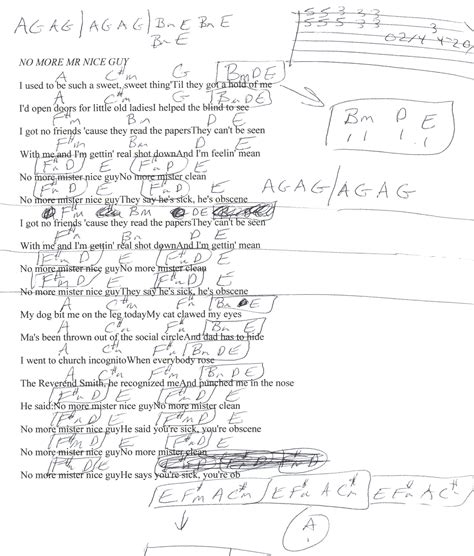 AGAG | AGAG | Bm E Bm E
Bm E
5 5 3 3 3
5 5 5 3 3
NO MORE MR NICE GUY
A C#m G Bm D E
I used to be such a sweet, sweet thing'Til they got a hold of me
A C#m G Bm D E
I'd open doors for little old ladiesI helped the blind to see
Bm D E
F#m Bm D E
I got no friends 'cause they read the papersThey can't be seen
F#m Bm D E
With me and I'm gettin' real shot downAnd I'm feelin' mean
F#m D E F#m D E
No more mister nice guyNo more mister clean
F#m D E F#m D E
No more mister nice guyThey say he's sick, he's obscene
AGAG / AGAG
F#m Bm DE
I got no friends 'cause they read the papersThey can't be seen
F#m Bm D E
With me and I'm gettin' real shot downAnd I'm gettin' mean
F#m D E C#m D E
No more mister nice guyNo more mister clean
F#m D E F#m D E
No more mister nice guyThey say he's sick, he's obscene
A C#m F#m Bm D E
My dog bit me on the leg todayMy cat clawed my eyes
A C#m F#m Bm D E
Ma's been thrown out of the social circleAnd dad has to hide
A C#m F#m Bm D E
I went to church incognitoWhen everybody rose
A C#m F#m Bm D E
The Reverend Smith, he recognized meAnd punched me in the nose
F#m D E F#m D E
He said:No more mister nice guyNo more mister clean
F#m D E F#m D E
No more mister nice guyHe said you're sick, you're obscene
F#m D E F#m D E
No more mister nice guyNo more mister clean
F#m D E
No more mister nice guyHe says you're sick, you're ob
E F#m A C#m / E F#m A C#m / E F#m A C#m
A